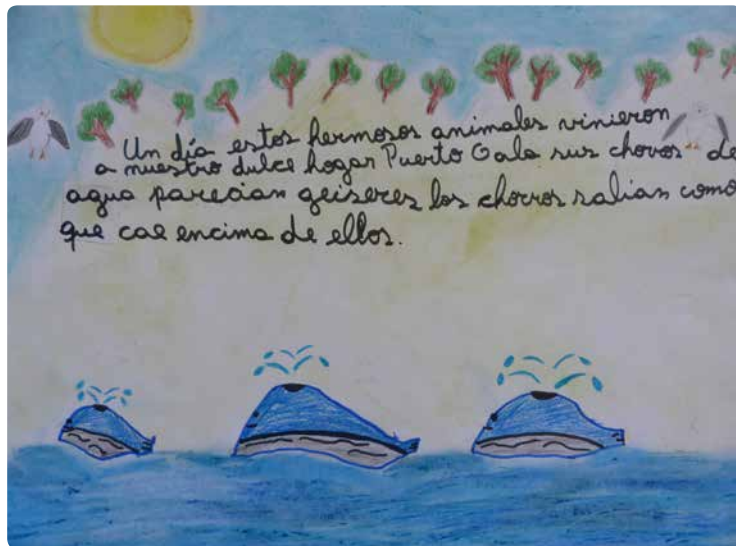 Un día estos hermosos animales vinieron
a nuestro dulce hogar Puerto Gala sus chovos de
agua parecian geiseres los chorros salian como
que cae encima de ellos.